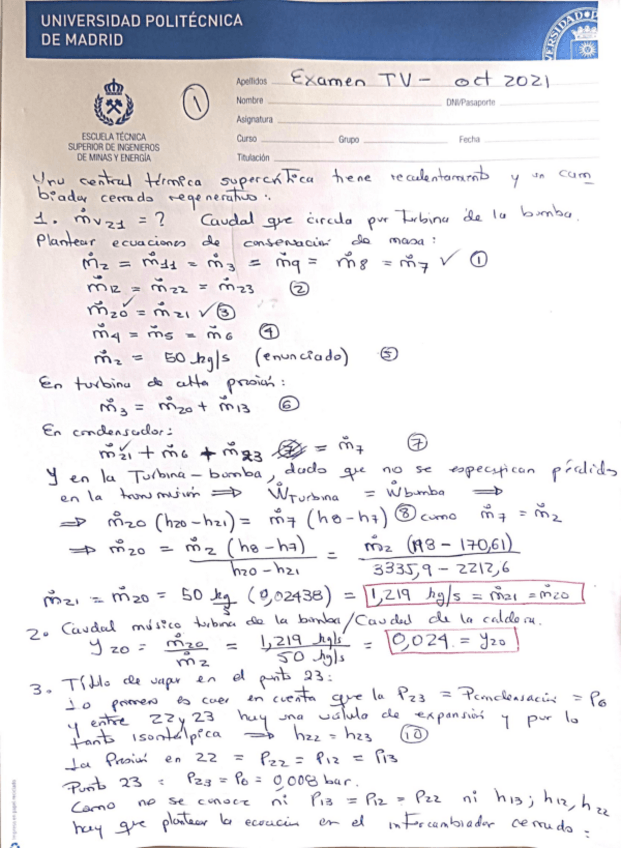 UNIVERSIDAD POLITÉCNICA
DE MADRID
ESCUELA TÉCNICA
SUPERIOR DE INGENIEROS
DE MINAS Y ENERGÍA
1
Apellidos Examen TV - oct 2021
Nombre DNI/Pasaporte
Asignatura
Curso Grupo Fecha
Titulación
Una central térmica supercrítica tiene recalentamiento y un cam
biador cerrado regenerativo:
1. ṁv21 = ? Caudal que circula por Turbina de la bomba.
Plantear ecuaciones de conservación de masa:
ṁ2 = ṁ11 = ṁ3 = ṁ9 = ṁ8 = ṁ7 ✓ ①
ṁ12 = ṁ22 = ṁ23 ②
ṁ20 = ṁ21 ✓ ③
ṁ4 = ṁ5 = ṁ6 ④
ṁ2 = 50 kg/s (enunciado) ⑤
En turbina de alta presión:
ṁ3 = ṁ20 + ṁ13 ⑥
En condensador:
ṁ21 + ṁ6 + ṁ23 = ṁ7 ⑦
Y en la Turbina-bomba, dado que no se especifican pérdidas
en la transmisión ⇒ ẆTurbina = Ẇbomba ⇒
⇒ ṁ20 (h20 - h21) = ṁ7 (h8 - h7) ⑧ como ṁ7 = ṁ2
⇒ ṁ20 = ṁ2 (h8 - h7) / h20 - h21 = ṁ2 (198 - 170,61) / 3335,9 - 2212,6
ṁ21 = ṁ20 = 50 kg/s (0,02438) = 1,219 kg/s = ṁ21 = ṁ20
2. Caudal másico turbina de la bomba/Caudal de la caldera.
y20 = ṁ20 / ṁ2 = 1,219 kg/s / 50 kg/s = 0,024 = y20
3. Título de vapor en el punto 23:
Lo primero es caer en cuenta que la P23 = Pcondensación = P6
y entre 22 y 23 hay una válvula de expansión y por lo
tanto isoentálpica ⇒ h22 = h23 ⑩
La Presión en 22 = P22 = P12 = P13
Punto 23 : P23 = P6 = 0,008 bar.
Como no se conoce ni P13 = P12 = P22 ni h13; h12, h22
hay que plantear la ecuación en el intercambiador cerrado: